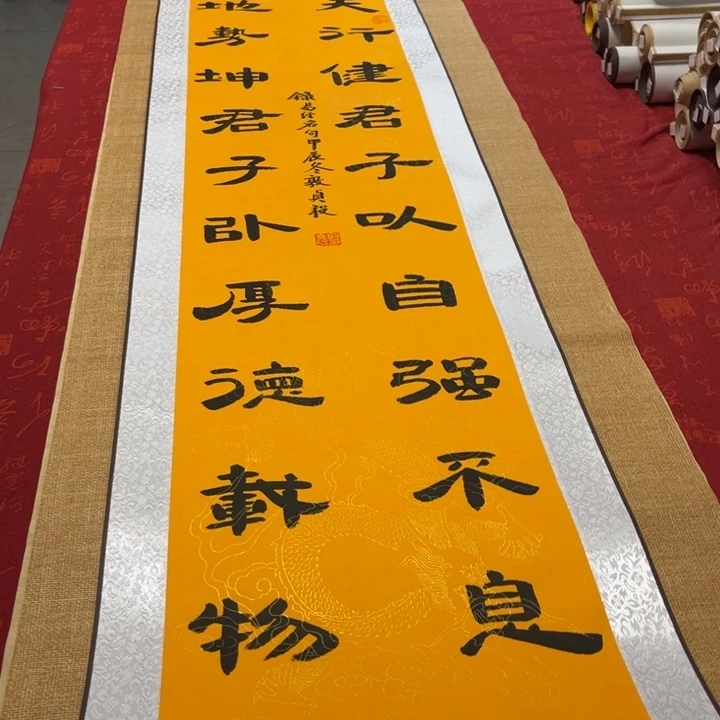 天行健君子以自强不息
地势坤君子以厚德载物
錄易经名句甲辰冬敦贞毅